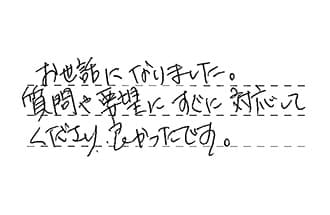 お世話になりました。
質問や要望にすぐに対応して
くださり、良かったです。